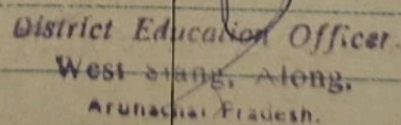 District Education Officer.
West Siang, Along,
Arunachal Pradesh.